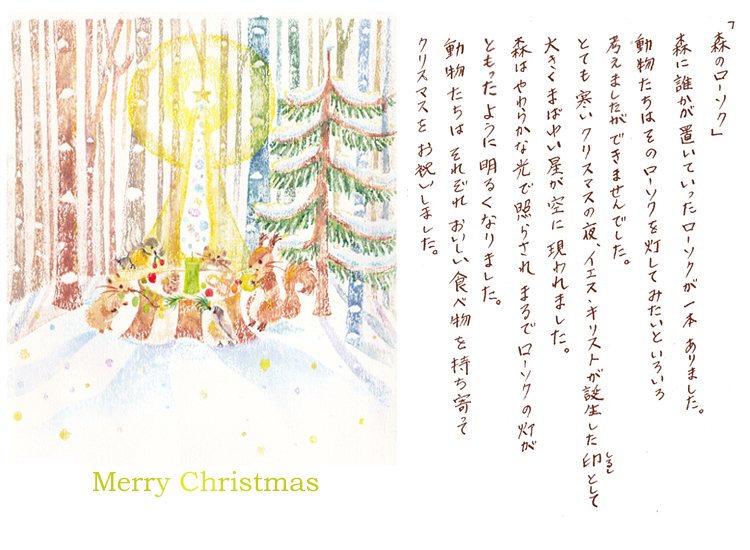 「森のローソク」
森に誰かが置いていったローソクが一本 ありました。
動物たちはそのローソクを灯してみたいといろいろ
考えましたができませんでした。
とても寒いクリスマスの夜、イエス・キリストが誕生した印として
しるし
大きくまばゆい星が空に現われました。
森はやわらかな光で照らされ まるでローソクの灯が
ともったように明るくなりました。
動物たちは それぞれ おいしい食べ物を持ち寄って
クリスマスをお祝いしました。
Merry Christmas